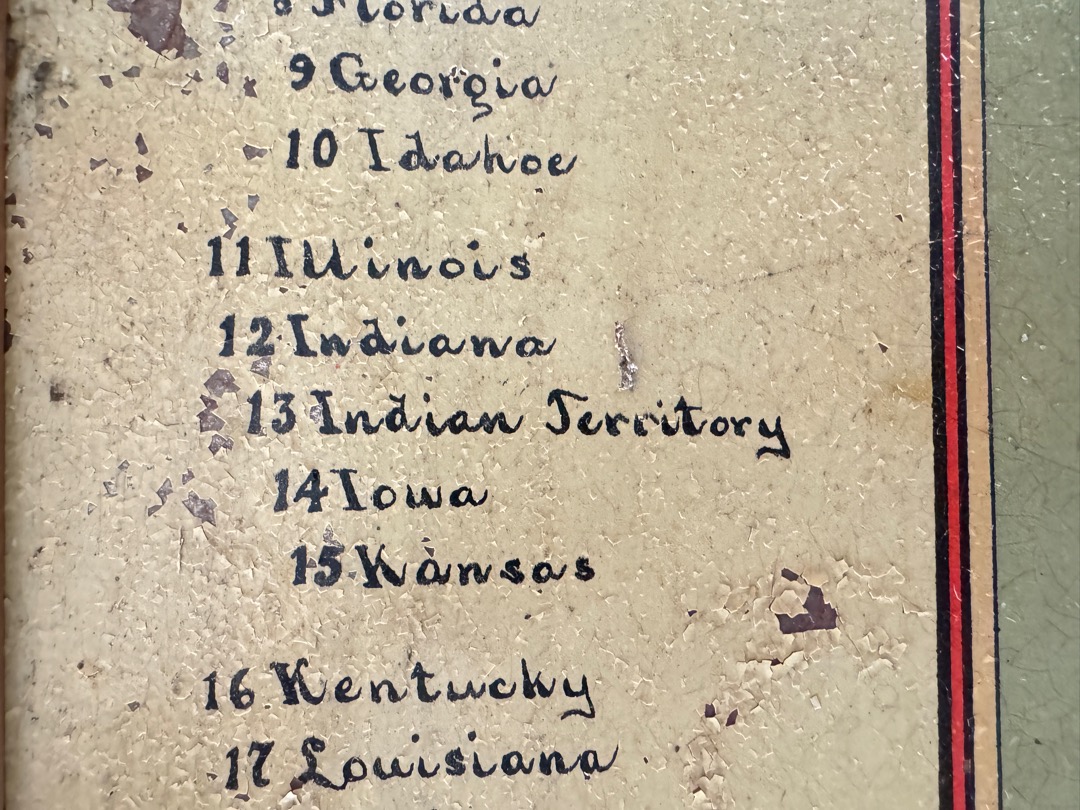 8 Florida
9 Georgia
10 Idahoe
11 Illinois
12 Indiana
13 Indian Territory
14 Iowa
15 Kansas
16 Kentucky
17 Louisiana